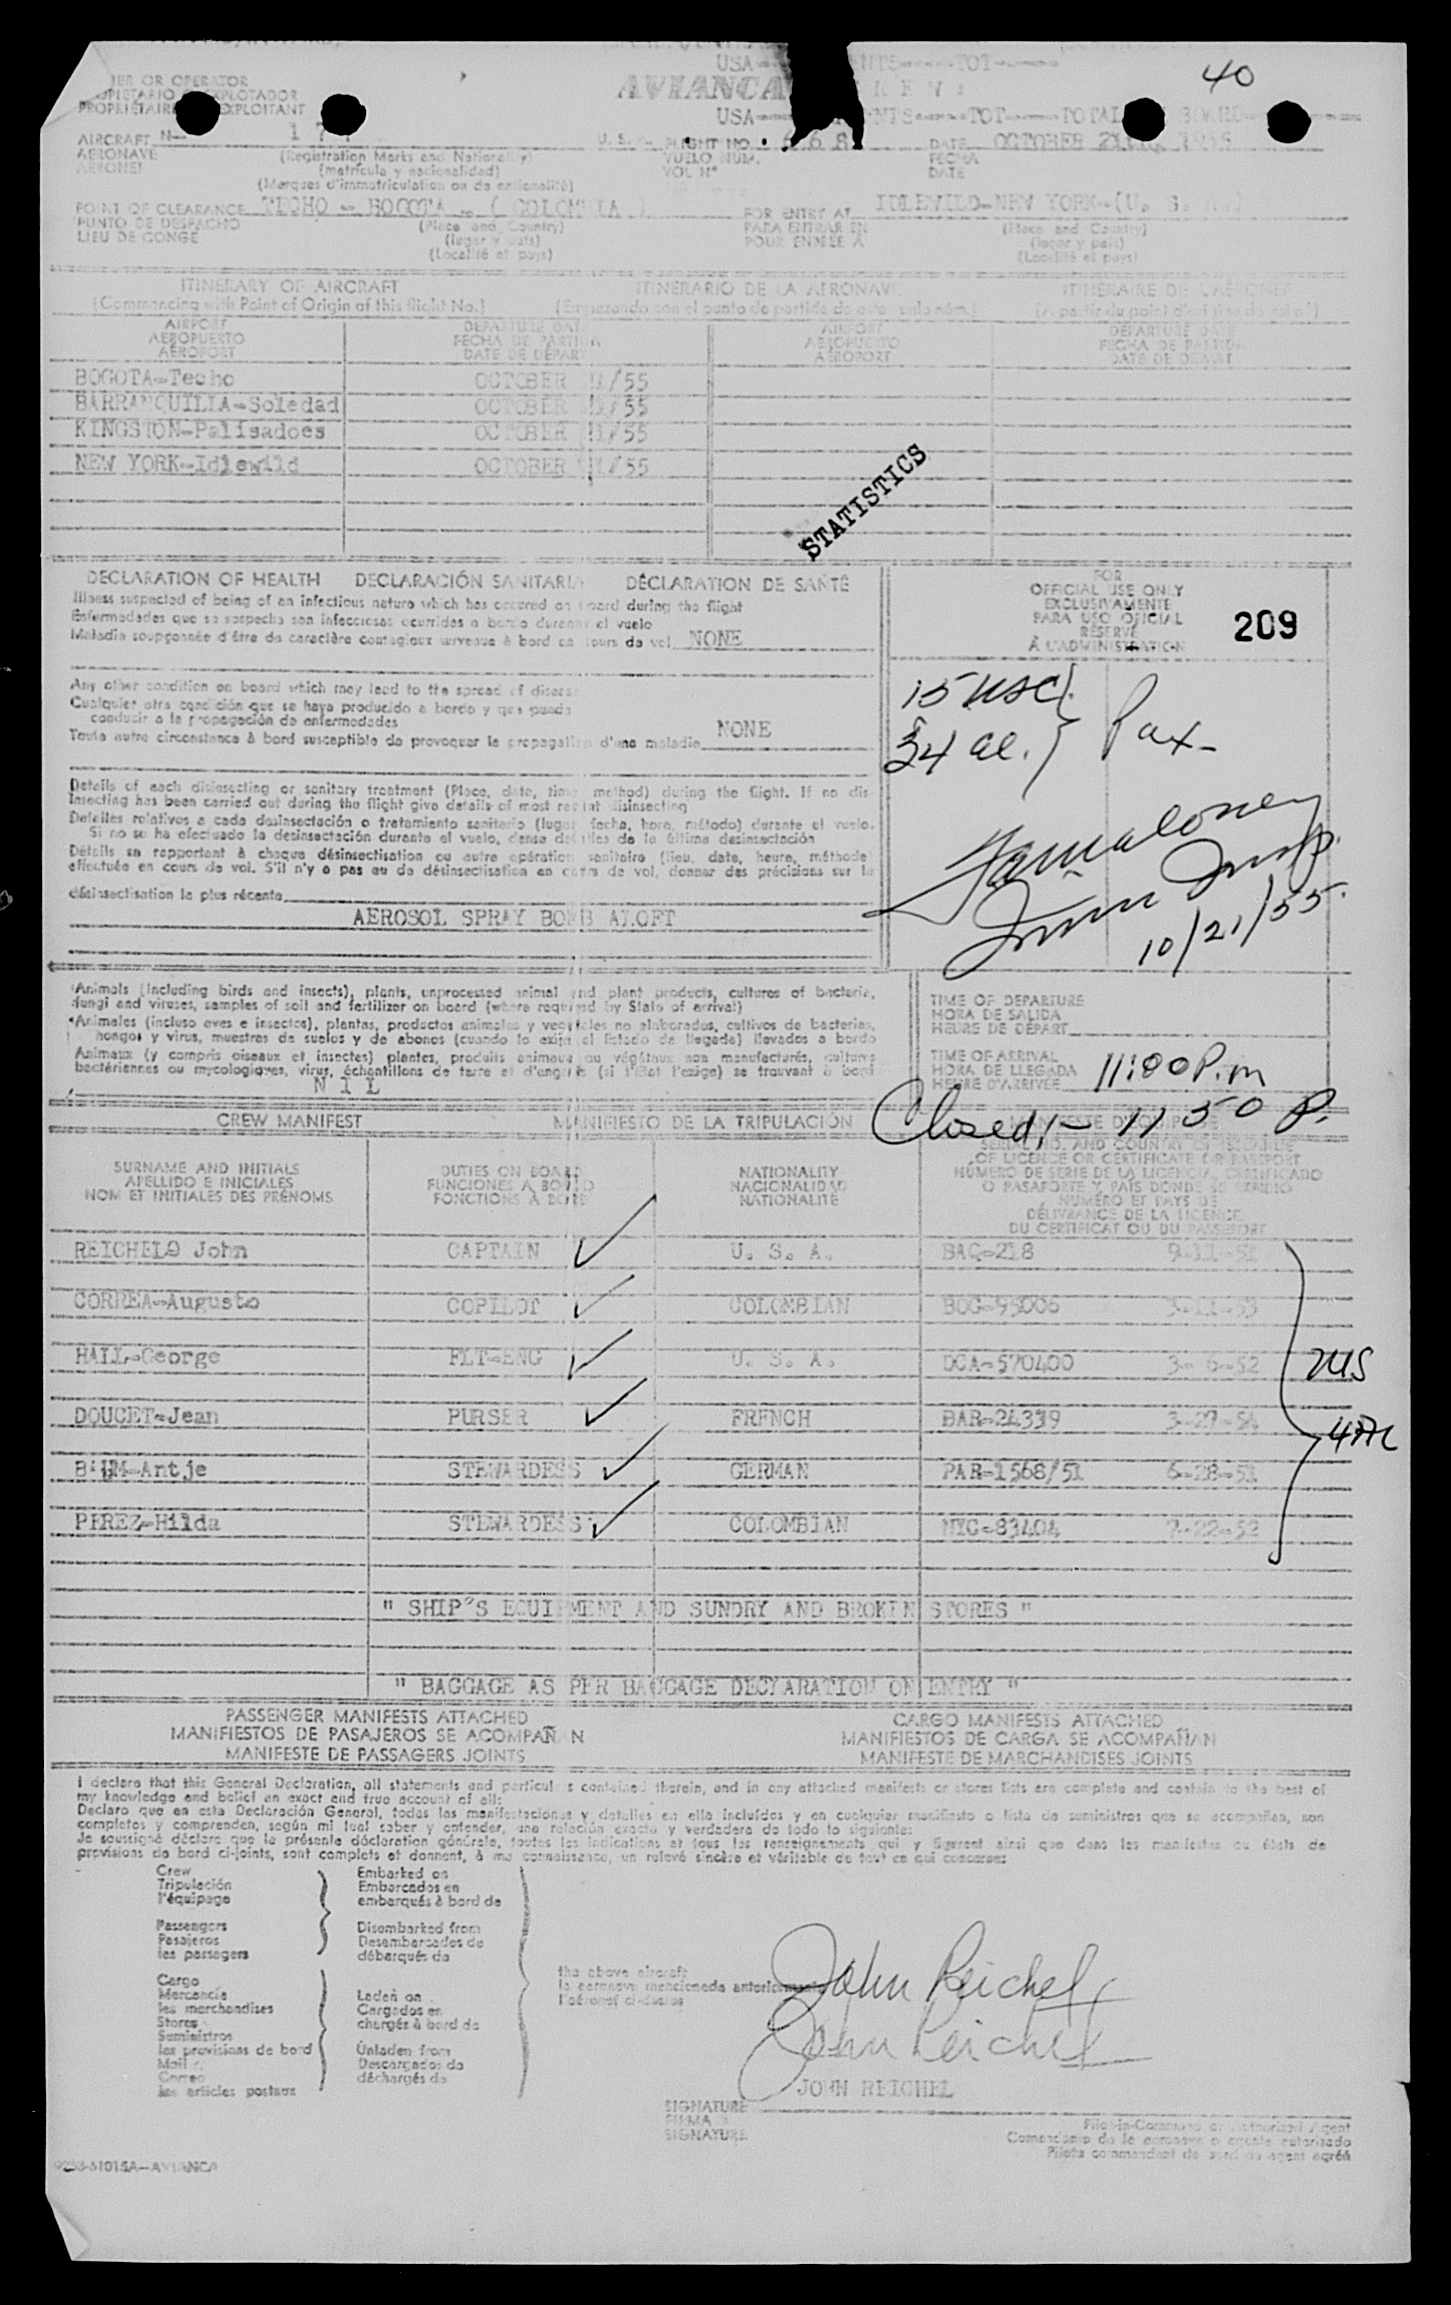 USA
TOT
40
OWNER OR OPERATOR
PROPIETARIO EXPLOTADOR
PROPRIÉTAIRE EXPLOITANT
AVIANCA
USA TOT TOTAL
AIRCRAFT N- U. S. FLIGHT NO. 668 DATE OCTOBER 1955
AERONAVE (Registration Marks and Nationality) VUELO NUM. FECHA
AERONEF (matrícula y nacionalidad) VOL Nº DATE
(Marques d'immatriculation ou de nationalité)
POINT OF CLEARANCE TECHO - BOGOTA - ( COLOMBIA ) FOR ENTRY AT IDLEWILD-NEW YORK-(U. S. A.)
PUNTO DE DESPACHO (Place and Country) PARA ENTRAR EN (Place and Country)
LIEU DE CONGE (lugar y país) POUR ENTREE A (lugar y país)
(Localité et pays) (Localité et pays)
ITINERARY OF AIRCRAFT ITINERARIO DE LA AERONAVE ITINÉRAIRE DE L'AÉRONEF
(Commencing with Point of Origin of this flight No.) (Empezando con el punto de partida de este vuelo núm.)
AIRPORT DEPARTURE DATE AIRPORT DEPARTURE DATE
AEROPUERTO FECHA DE PARTIDA AEROPUERTO FECHA DE PARTIDA
AÉROPORT DATE DE DÉPART AÉROPORT DATE DE DÉPART
BOGOTA-Techo OCTOBER /55
BARRANQUILLA-Soledad OCTOBER /55
KINGSTON-Palisadoes OCTOBER /55
NEW YORK-Idlewild OCTOBER /55
STATISTICS
DECLARATION OF HEALTH DECLARACIÓN SANITARIA DÉCLARATION DE SANTÉ
Illness suspected of being of an infectious nature which has occured on board during the flight
Enfermedades que se sospecha son infecciosas ocurridas a bordo durante el vuelo
Maladie soupçonnée d'être de caractère contagieux survenue à bord en cours de vol NONE
FOR
OFFICIAL USE ONLY
EXCLUSIVAMENTE
PARA USO OFICIAL
RÉSERVÉ
À L'ADMINISTRATION
209
Any other condition on board which may lead to the spread of disease
Cualquier otra condición que se haya producido a bordo y que pueda
conducir a la propagación de enfermedades
Toute autre circonstance à bord susceptible de provoquer la propagation d'une maladie NONE
15 USC
34 al. } Pax-
Details of each disinsecting or sanitary treatment (Place, date, time, method) during the flight. If no dis-
insecting has been carried out during the flight give details of most recent disinsecting
Detalles relativos a cada desinsectación o tratamiento sanitario (lugar, fecha, hora, método) durante el vuelo.
Si no se ha efectuado la desinsectación durante el vuelo, dense detalles de la última desinsectación
Détails se rapportant à chaque désinsectisation ou autre opération sanitaire (lieu, date, heure, méthode)
effectuée en cours de vol. S'il n'y a pas eu de désinsectisation en cours de vol, donner des précisions sur la
désinsectisation la plus récente
AEROSOL SPRAY BOMB ALOFT
Imm Insp.
10/21/55.
Animals (including birds and insects), plants, unprocessed animal and plant products, cultures of bacteria,
fungi and viruses, samples of soil and fertilizer on board (where required by State of arrival)
Animales (incluso aves e insectos), plantas, productos animales y vegetales no elaborados, cultivos de bacterias,
hongos y virus, muestras de suelos y de abonos (cuando lo exija el Estado de llegada) llevados a bordo
Animaux (y compris oiseaux et insectes) plantes, produits animaux ou végétaux non manufacturés, cultures
bactériennes ou mycologiques, virus, échantillons de terre et d'engrais (si l'État l'exige) se trouvant à bord
NIL
TIME OF DEPARTURE
HORA DE SALIDA
HEURE DE DÉPART
TIME OF ARRIVAL
HORA DE LLEGADA 11:00 P.m
HEURE D'ARRIVÉE
Closed,- 11 50 P.
CREW MANIFEST MANIFIESTO DE LA TRIPULACIÓN MANIFESTE D'ÉQUIPAGE
SURNAME AND INITIALS DUTIES ON BOARD NATIONALITY SERIAL NO. AND COUNTRY OF ISSUANCE
APELLIDO E INICIALES FUNCIONES A BORDO NACIONALIDAD OF LICENCE OR CERTIFICATE OR PASSPORT
NOM ET INITIALES DES PRÉNOMS FONCTIONS À BORD NATIONALITÉ NÚMERO DE SERIE DE LA LICENCIA, CERTIFICADO
O PASAPORTE Y PAÍS DONDE SE EXPIDIÓ
NUMÉRO ET PAYS DE
DÉLIVRANCE DE LA LICENCE,
DU CERTIFICAT OU DU PASSEPORT
REICHEL John CAPTAIN U. S. A. BAQ-218 9-11-51
CORREA-Augusto COPILOT COLOMBIAN BOG-95006 3-11-53
HALL-George FLT-ENG U. S. A. DCA-570400 3- 6-52
2US
DOUCET-Jean PURSER FRENCH BAR-24339 3-27-54
4AL
-Antje STEWARDESS GERMAN PAR-1568/51 6-28-51
PEREZ-Hilda STEWARDESS COLOMBIAN NYC-83404 7-22-52
" SHIP'S EQUIPMENT AND SUNDRY AND BROKEN STORES "
" BAGGAGE AS PER BAGGAGE DECLARATION ON ENTRY "
PASSENGER MANIFESTS ATTACHED CARGO MANIFESTS ATTACHED
MANIFIESTOS DE PASAJEROS SE ACOMPAÑAN MANIFIESTOS DE CARGA SE ACOMPAÑAN
MANIFESTE DE PASSAGERS JOINTS MANIFESTE DE MARCHANDISES JOINTS
I declare that this General Declaration, all statements and particulars contained therein, and in any attached manifests or stores lists are complete and contain to the best of
my knowledge and belief an exact and true account of all:
Declaro que en esta Declaración General, todas las manifestaciones y detalles en ella incluídos y en cualquier manifiesto o lista de suministros que se acompañan, son
completos y comprenden, según mi leal saber y entender, una relación exacta y verdadera de todo lo siguiente:
Je soussigné déclare que la présente déclaration générale, toutes les indications et tous les renseignements qui y figurent ainsi que dans les manifestes ou états de
provisions de bord ci-joints, sont complets et donnent, à ma connaissance, un relevé sincère et véritable de tout ce qui concerne:
Crew Embarked on
Tripulación Embarcados en
l'équipage embarqués à bord de
Passengers Disembarked from
Pasajeros Desembarcados de
les passagers débarqués de
Cargo the above aircraft
Mercancía Laden on la aeronave mencionada anteriormente
les marchandises Cargados en l'aéronef ci-dessus
Stores chargés à bord de
Suministros
les provisions de bord Unladen from
Mail Descargados de
Correo déchargés de
les articles postaux
John Reichel
John Reichel
JOHN REICHEL
SIGNATURE
FIRMA
SIGNATURE
Pilot-in-Command or Authorized Agent
Comandante de la aeronave o agente autorizado
Pilote commandant de bord ou agent agréé
61015A-AVIANCA